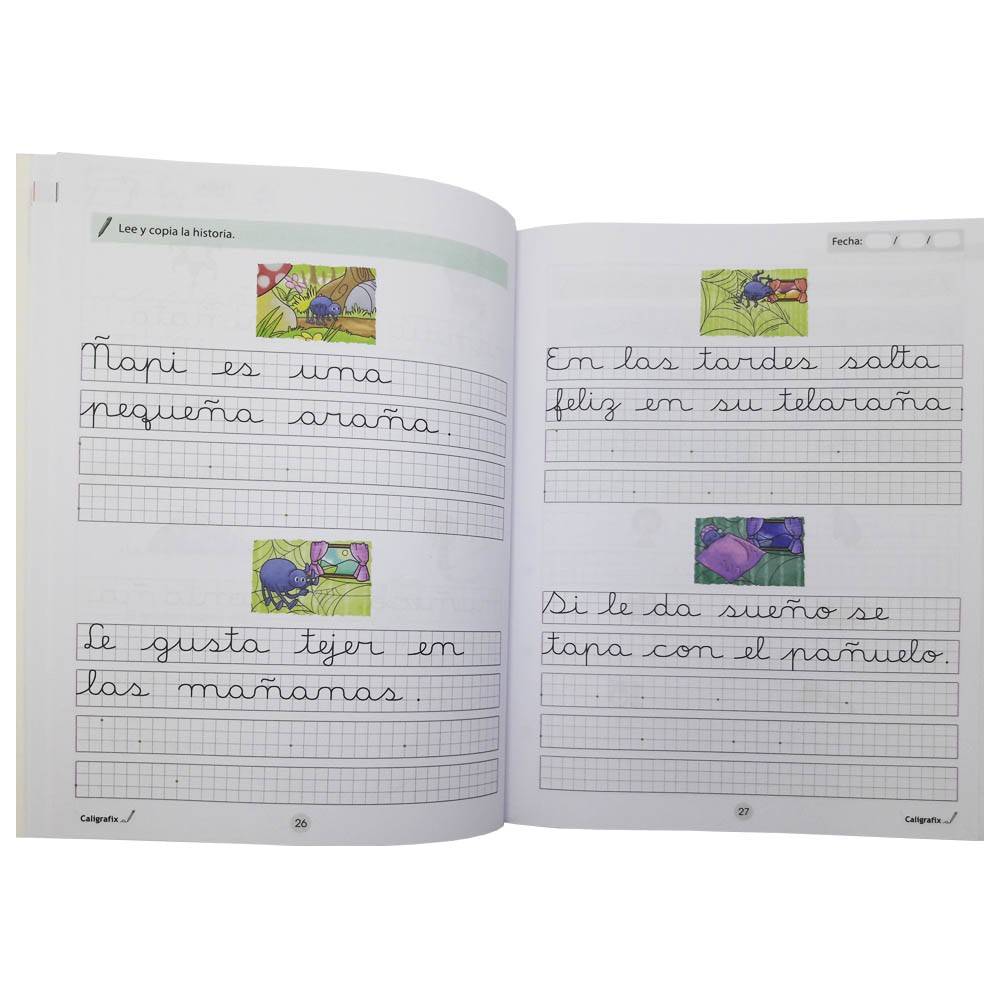 Lee y copia la historia.
Ñapi es una
pequeña araña.
Le gusta tejer en
las mañanas.
Caligrafix
26
Fecha: / /
En las tardes salta
feliz en su telaraña.
Si le da sueño se
tapa con el pañuelo.
27
Caligrafix